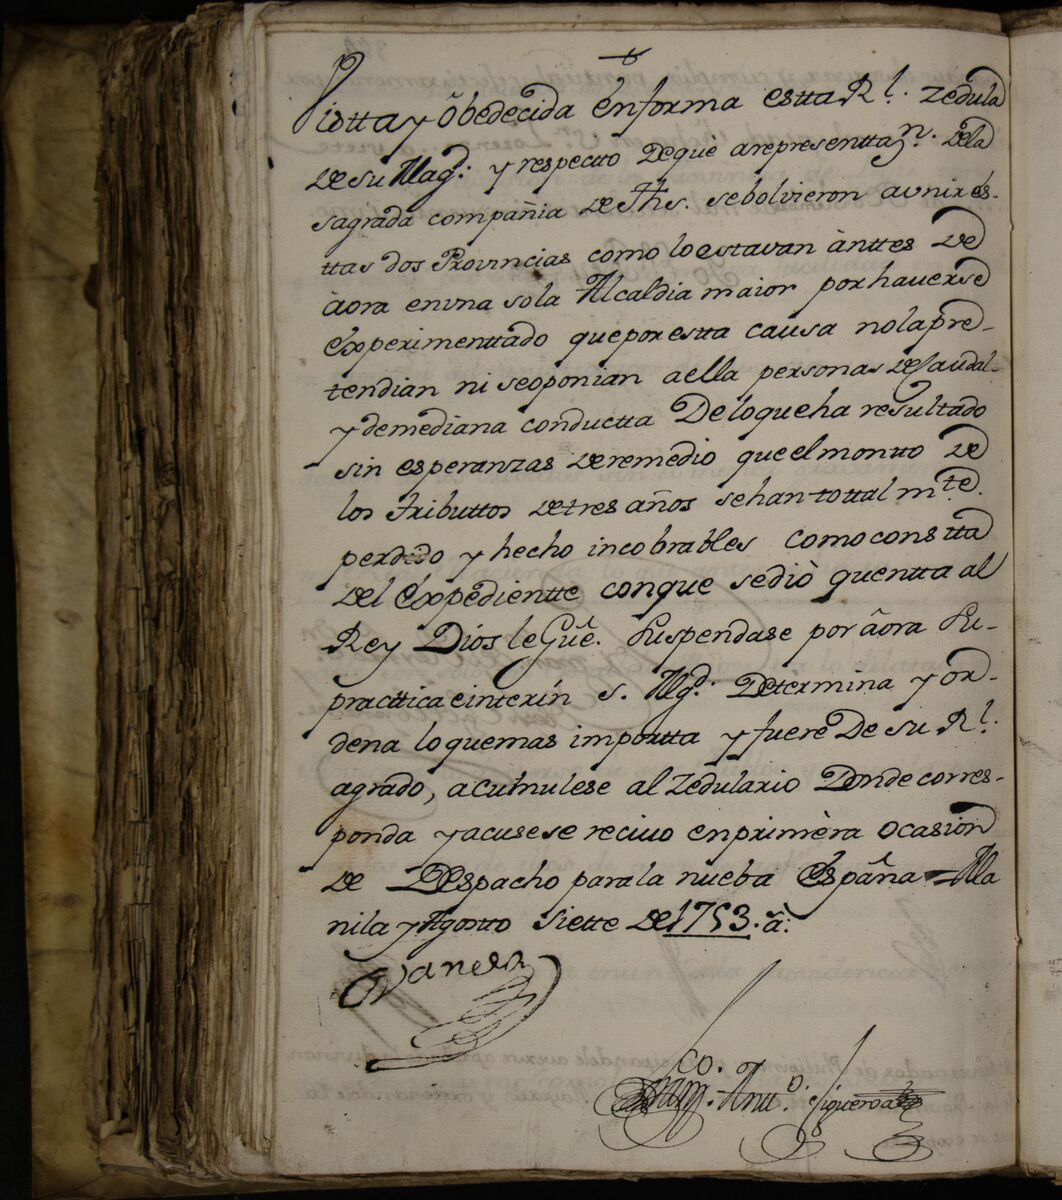 Vistta y ôbedecida en forma estta Rl. Zedula
de su Magd. y respectto de que a representtazn. de la
sagrada compañia de Jhs. se bolvieron a vnir es-
ttas dos Provincias como lo estavan ànttes de
àora en vna sola Alcaldia maior por haverse
experimenttado que por estta causa no la pre-
tendian ni se oponian a ella personas de Caudal
y de mediana conductta De lo que ha resulttado
sin esperanzas de remedio que el montto de
los tributtos de tres años se han tottalmte.
perdido y hecho incobrables como constta
del expedientte con que se diò quentta al
Rey Dios le Gûe. Suspendase por âora su
practtica einterin s. Mgd. Determina y or-
dena lo que mas importta y fuere De su Rl.
agrado, acumulese al Zedulario Donde corres-
ponda y acusese recivo en primèra ocasion
de Despacho para la nueba España = Ma
nila y Agostto siette de 1753. â:
Ovando
Franco. Antto. Figueroa